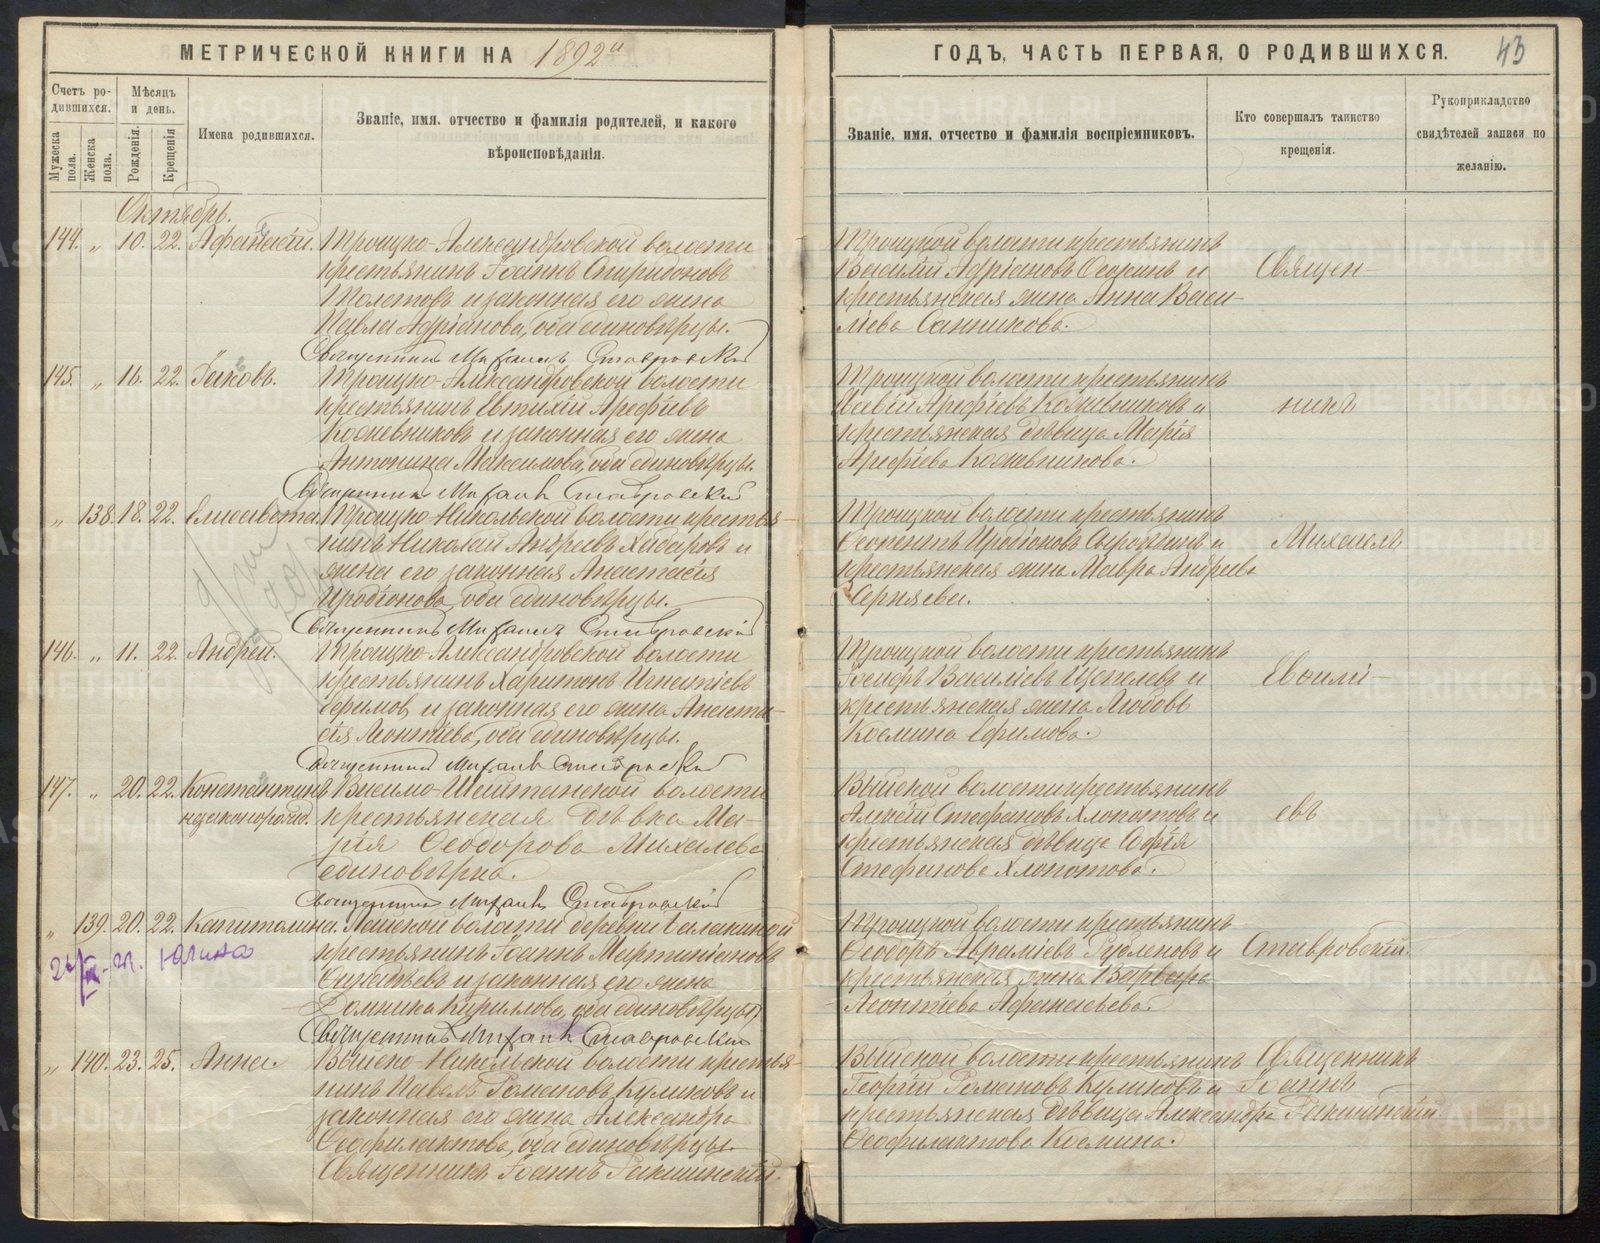 МЕТРИЧЕСКОЙ КНИГИ НА 1892 й
Счетъ родившихся.
Мужеска пола.
Женска пола.
Мѣсяцъ и день.
Рожденія.
Крещенія
Имена родившихся.
Званіе, имя, отчество и фамилія родителей, и какого
вѣроисповѣданія.
Октябрь.
144. „ 10. 22. Афанасій. Троицко-Александровской волости
крестьянинъ Іоаннъ Спиридоновъ
Толстовъ и законная его жена
Павла Адріанова, оба единовѣрцы.
Священникъ Михаилъ Ставровскій
145. „ 16. 22. Іаковъ. Троицко-Александровской волости
крестьянинъ Евтихій Арефіевъ
Кожевниковъ и законная его жена
Антонина Максимова, оба единовѣрцы.
Священникъ Михаилъ Ставровскій
„ 138. 18. 22. Елисавета. Троицко-Никольской волости крестья-
нинъ Николай Андреевъ Хабаровъ и
жена его законная Анастасія
Иродіонова, оба единовѣрцы.
Священникъ Михаилъ Ставровскій
146. „ 11. 22. Андрей. Троицко-Александровской волости
крестьянинъ Харитонъ Игнатіевъ
Ефимов, и законная его жена Анаста-
сія Леонтіева, оба единовѣрцы.
Священникъ Михаилъ Ставровскій
147. „ 20. 22. Константинъ Висимо-Шайтанской волости
незаконорожд. крестьянская дѣвка Ма-
рія Ѳеодорова Михалева
единовѣрка.
Священникъ Михаилъ Ставровскій
„ 139. 20. 22. Капитолина. Лайской волости деревни Балакиной
крестьянинъ Іоаннъ Мартиніановъ
и законная его жена
Домника Кириллова, оба единовѣрцы
Священникъ Михаилъ Ставровскій
„ 140. 23. 25. Анна. Выйско-Никольской волости крестья-
нинъ Павелъ Романовъ Куликовъ и
законная его жена Александра
Ѳеофилактова, оба единовѣрцы.
Священникъ Іоаннъ
ГОДЪ, ЧАСТЬ ПЕРВАЯ, О РОДИВШИХСЯ. 43
Званіе, имя, отчество и фамилія воспріемниковъ.
Кто совершалъ таинство
крещенія.
Рукоприкладство
свидѣтелей записи по
желанію.
Троицкой волости крестьянинъ
Василій Адріановъ и
крестьянская жена Анна Васи-
ліева Санникова.
Троицкой волости крестьянинъ
Арефіевъ Кожевниковъ и
крестьянская дѣвица Марія
Арефіева Кожевникова.
Троицкой волости крестьянинъ
Иродіоновъ и
крестьянская жена Мавра Андреева
Троицкой волости крестьянинъ
Василіевъ и
крестьянская жена Любовь
Космина Ефимова.
Выйской волости крестьянинъ
Алексій Стефановъ Хлопотовъ и
крестьянская дѣвица Софія
Стефанова Хлопотова.
Троицкой волости крестьянинъ
Ѳеодоръ Авраміевъ и
крестьянская жена Варвара
Леонтіева Афанасьева.
Выйской волости крестьянинъ
Георгій Романовъ Куликовъ и
крестьянская дѣвица Александра
Ѳеофилактова Космина.
Священ-
никъ
Михаилъ
Ставровскій.
Священникъ
Іоаннъ
METRIKI.GASO-URAL.RU